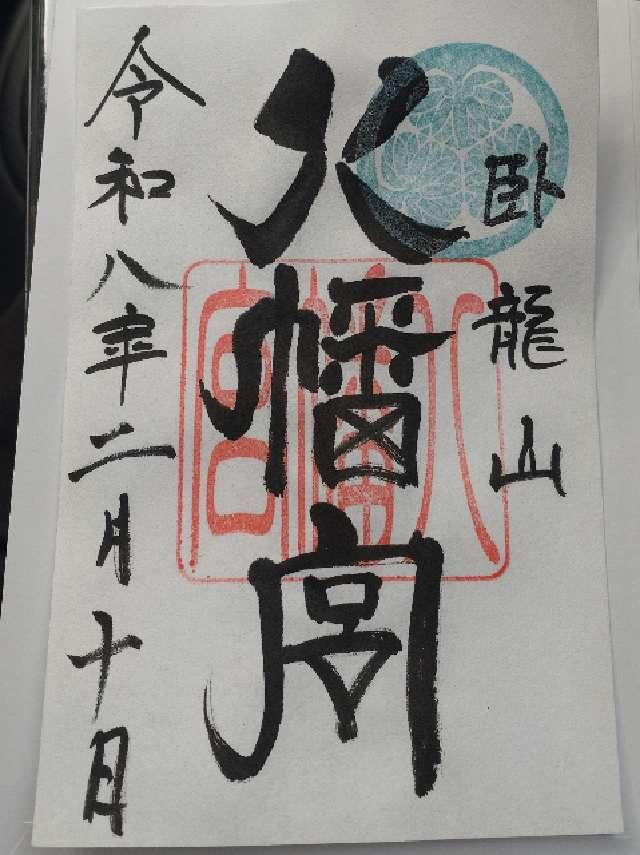 臥龍山
八幡宮
八幡宮
令和八年二月十日